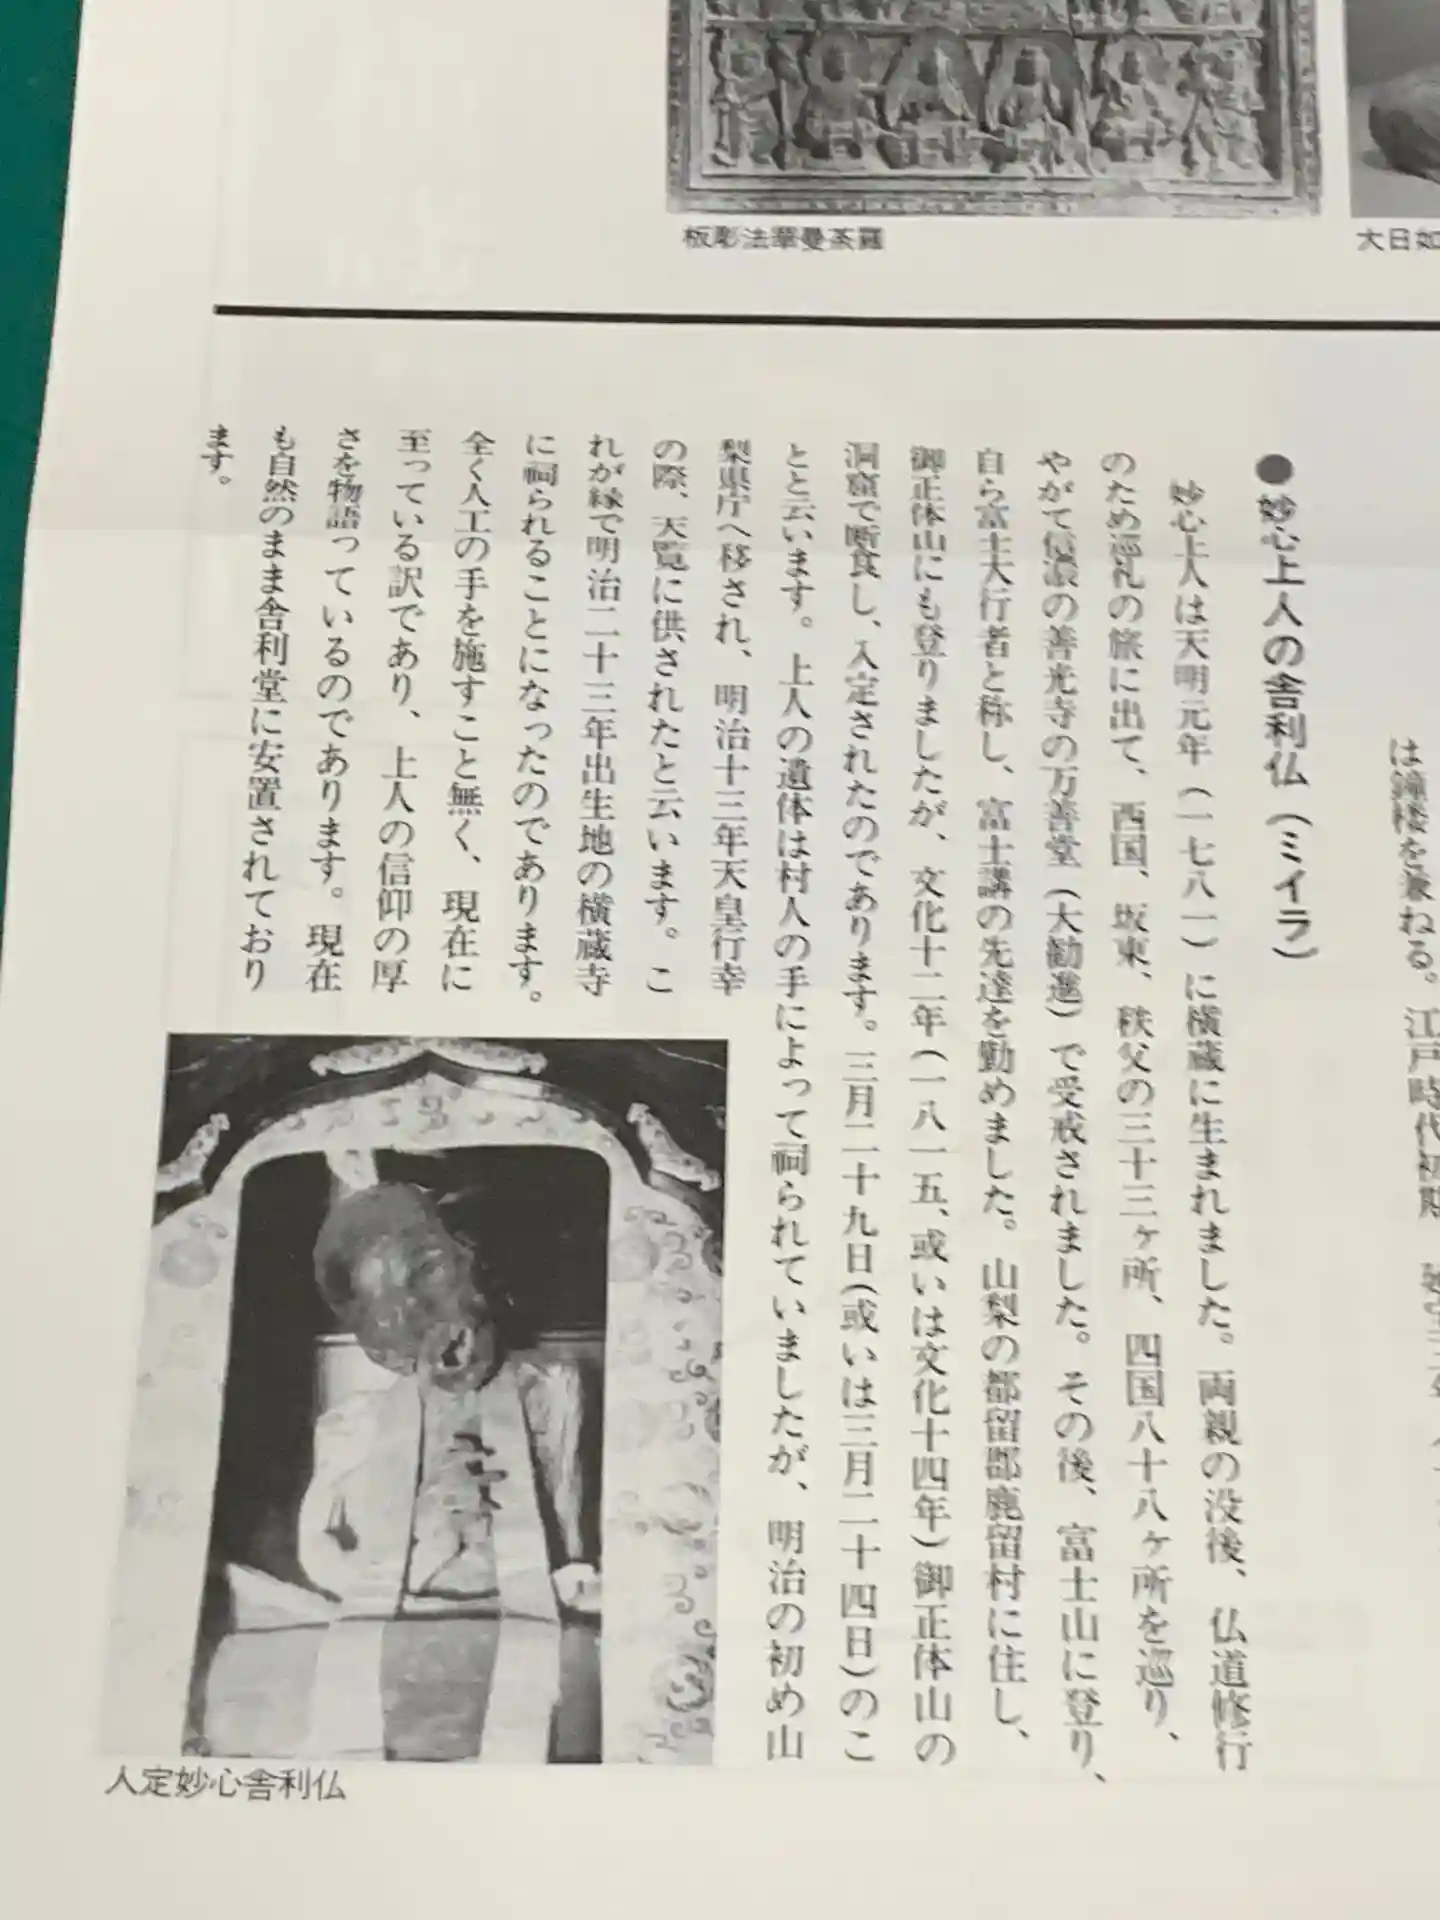 板彫法華曼荼羅
大日如
は鐘楼を兼ねる。江戸時代初期
●妙心上人の舎利仏（ミイラ）
妙心上人は天明元年（一七八一）に横蔵に生まれました。両親の没後、仏道修行
のため巡礼の旅に出て、西国、坂東、秩父の三十三ヶ所、四国八十八ヶ所を巡り、
やがて信濃の善光寺の万善堂（大勧進）で受戒されました。その後、富士山に登り、
自ら富士大行者と称し、富士講の先達を勤めました。山梨の都留郡鹿留村に住し、
御正体山にも登りましたが、文化十二年（一八一五、或いは文化十四年）御正体山の
洞窟で断食し、入定されたのであります。三月二十九日（或いは三月二十四日）のこ
とと云います。上人の遺体は村人の手によって祠られていましたが、明治の初め山
梨県庁へ移され、明治十三年天皇行幸
の際、天覧に供されたと云います。こ
れが縁で明治二十三年出生地の横蔵寺
に祠られることになったのであります。
全く人工の手を施すこと無く、現在に
至っている訳であり、上人の信仰の厚
さを物語っているのであります。現在
も自然のまま舎利堂に安置されており
ます。
入定妙心舎利仏